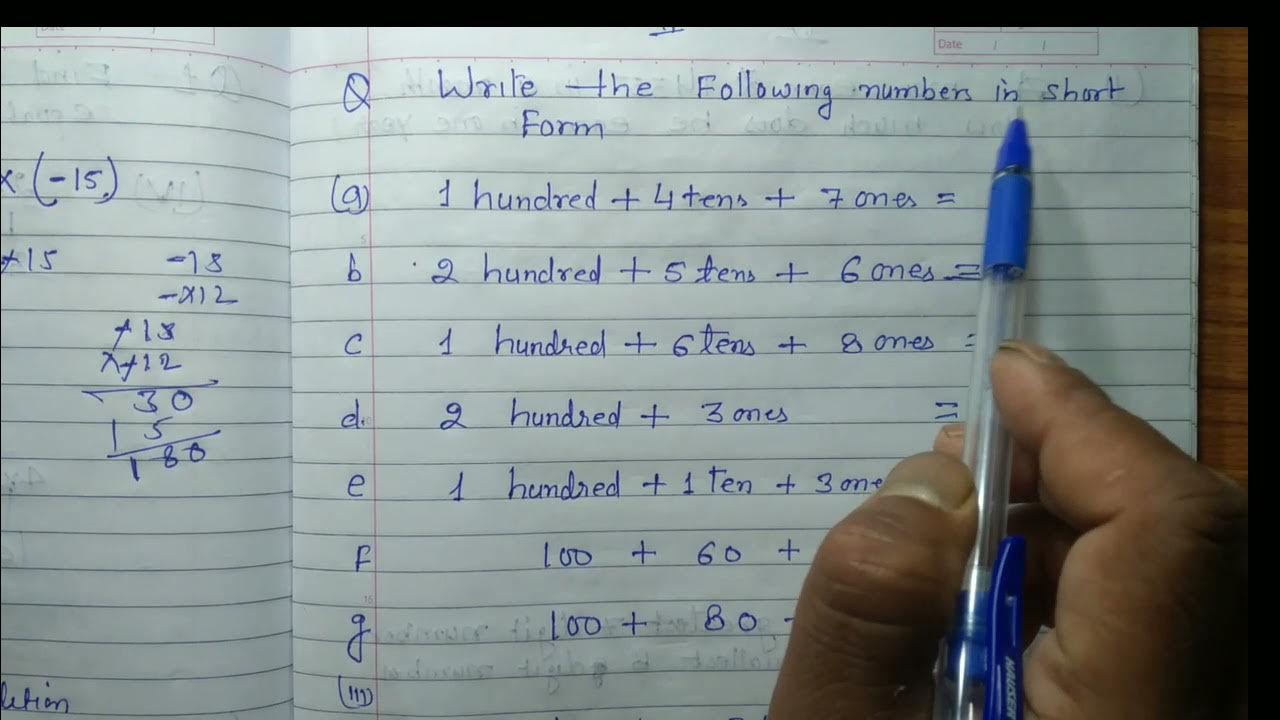 Date / /
Q Write the Following numbers in short
Form
(a) 1 hundred + 4 tens + 7 ones =
b 2 hundred + 5 tens + 6 ones =
c 1 hundred + 6 tens + 8 ones =
d. 2 hundred + 3 ones =
e 1 hundred + 1 Ten + 3 one
F 100 + 60 +
g 100 + 80
(III)
x (-15)
+15 -18
-x12
+18
x+12
30
15
180
HAUSER